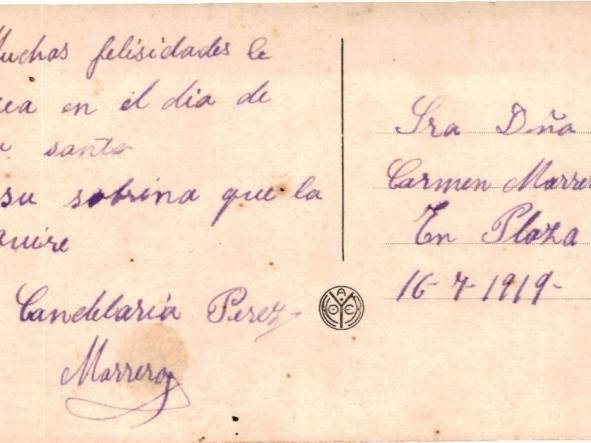 uchas felisidades le
ea en el dia de
santo
su sobrina que la
quire
Candelaria Perez
Marrero
Sra Dña
Carmen Marrer
En Plaza
16-7-1919-